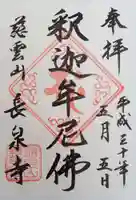 奉拝
平成三十年
五月五日
釈迦牟尼佛
慈雲山
長泉寺